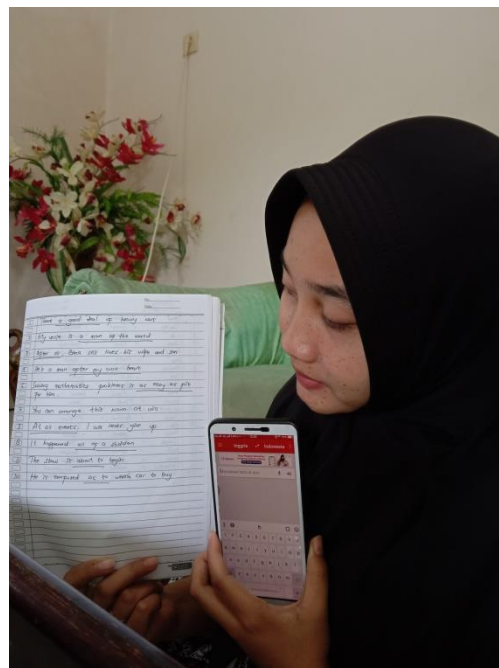 No.
Date
1 have a good deal of heavy work
2 My uncle is a man of the world
3 after all Benk still loves his wife and son
4 He's a man after my own heart
5 Solving mathematics problems is as easy as pie
for him
6 You can arrange this room at will
7 As as always, we never give up
8 It happened as of a sudden
9 The show is about to begin
10 He is confused as to which car to buy
Inggris
Indonesia